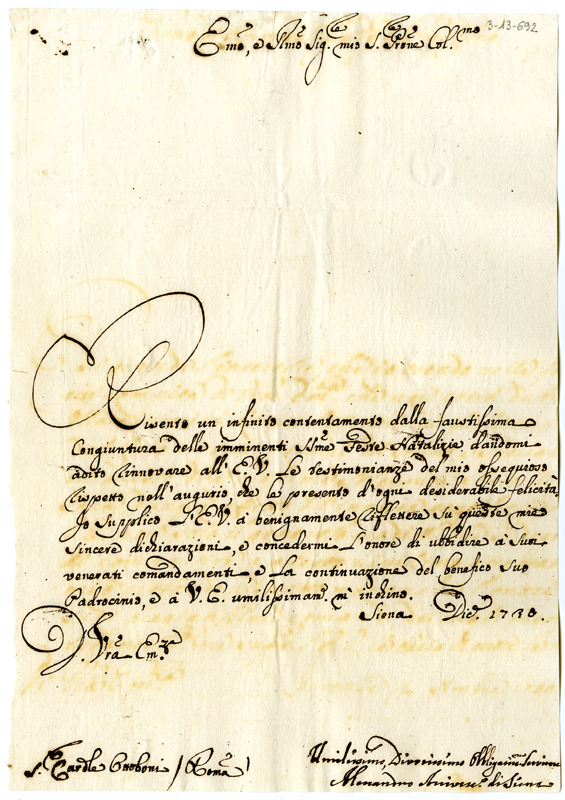 3-13-692
Emo, e Rmo Sig.re mio S. Prone Col.mo
Risento un infinito contentamento dalla faustissima
Congiuntura delle imminenti SSme Feste Natalizie dandomi
adito rinnovare all'E.V. Le testimonianze del mio ossequioso
rispetto nell'augurio, che le presento d'ogni desiderabile felicità
Io supplico L'E.V. à benignamente riflettere su queste mie
sincere dichiarazioni, e concedermi L'onore di ubbidire à suoi
venerati comandamenti, e La continuazione del benefico suo
Padrocinio, e à V. E. umilissimam.e m'inchino.
Siena Dic.e 1730.
D. Vra Em.za
S. Cardle Ottoboni / Roma
Umilissimo, Divotissimo Obbligatissmo Servitore
Alessandro Arcives.o di Siena